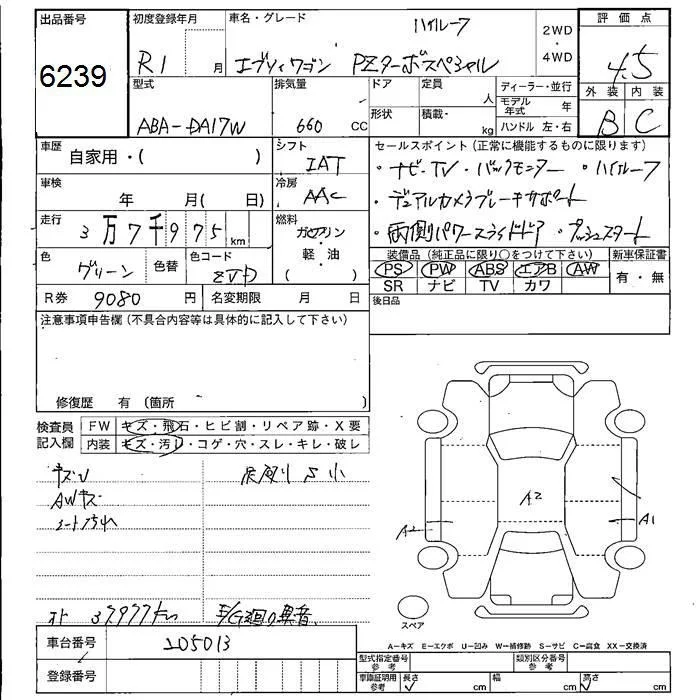 出品番号 初度登録年月 車名・グレード ハイルーフ 2WD ・ 4WD 評価点
6239 R1 月 エブリィワゴン PZターボスペシャル 4.5
型式 排気量 ドア 定員 人 ディーラー・並行 外装 内装
ABA-DA17W 660 CC 形状 積載・ kg モデル年式 年 ハンドル 左・右 B C
車歴 自家用・( ) シフト IAT セールスポイント(正常に機能するものに限ります)
車検 年 月( 日) 冷房 AAC ・ナビ・TV・バックモニター ・ハイルーフ
・デュアルカメラブレーキサポート
走行 3万7千975 km 燃料 ガソリン ・両側パワースライドドア ・プッシュスタート
軽・油
( )
色 グリーン 色替 色コード ZVD 装備品(純正品に限り○をつけて下さい) 新車保証書
PS PW ABS エアB AW 有・無
SR ナビ TV カワ
R券 9080 円 名変期限 月 日 後日品
注意事項申告欄(不具合内容等は具体的に記入して下さい)
修復歴 有 (箇所
検査員記入欄 FW キズ・飛石・ヒビ割・リペア跡・X要
内装 キズ・汚レ・コゲ・穴・スレ・キレ・破レ
キズU S小
AWキズ
シート汚れ
A2 A2 A1
オド 37977km E/G廻り異音
スペア
車台番号 205013
A-キズ E-エクボ U-凹み W-補修跡 S-サビ C-腐食 XX-交換済
登録番号 型式指定番号 参考 類別区分番号 参考
車庫証明用 参考 長さ cm 幅 cm 高さ cm